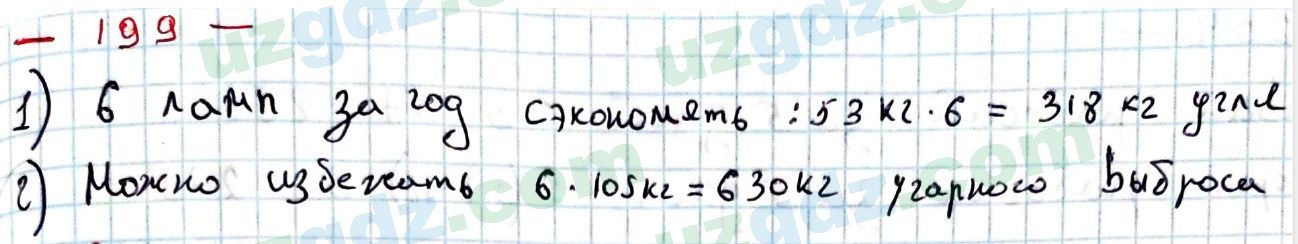 — 199 —
1) 6 ламп за год сэкономять : 53 кг · 6 = 318 кг угля
2) Можно избежать 6 · 105кг = 630кг угарного выброса
uzgdz.com
uzgdz.com